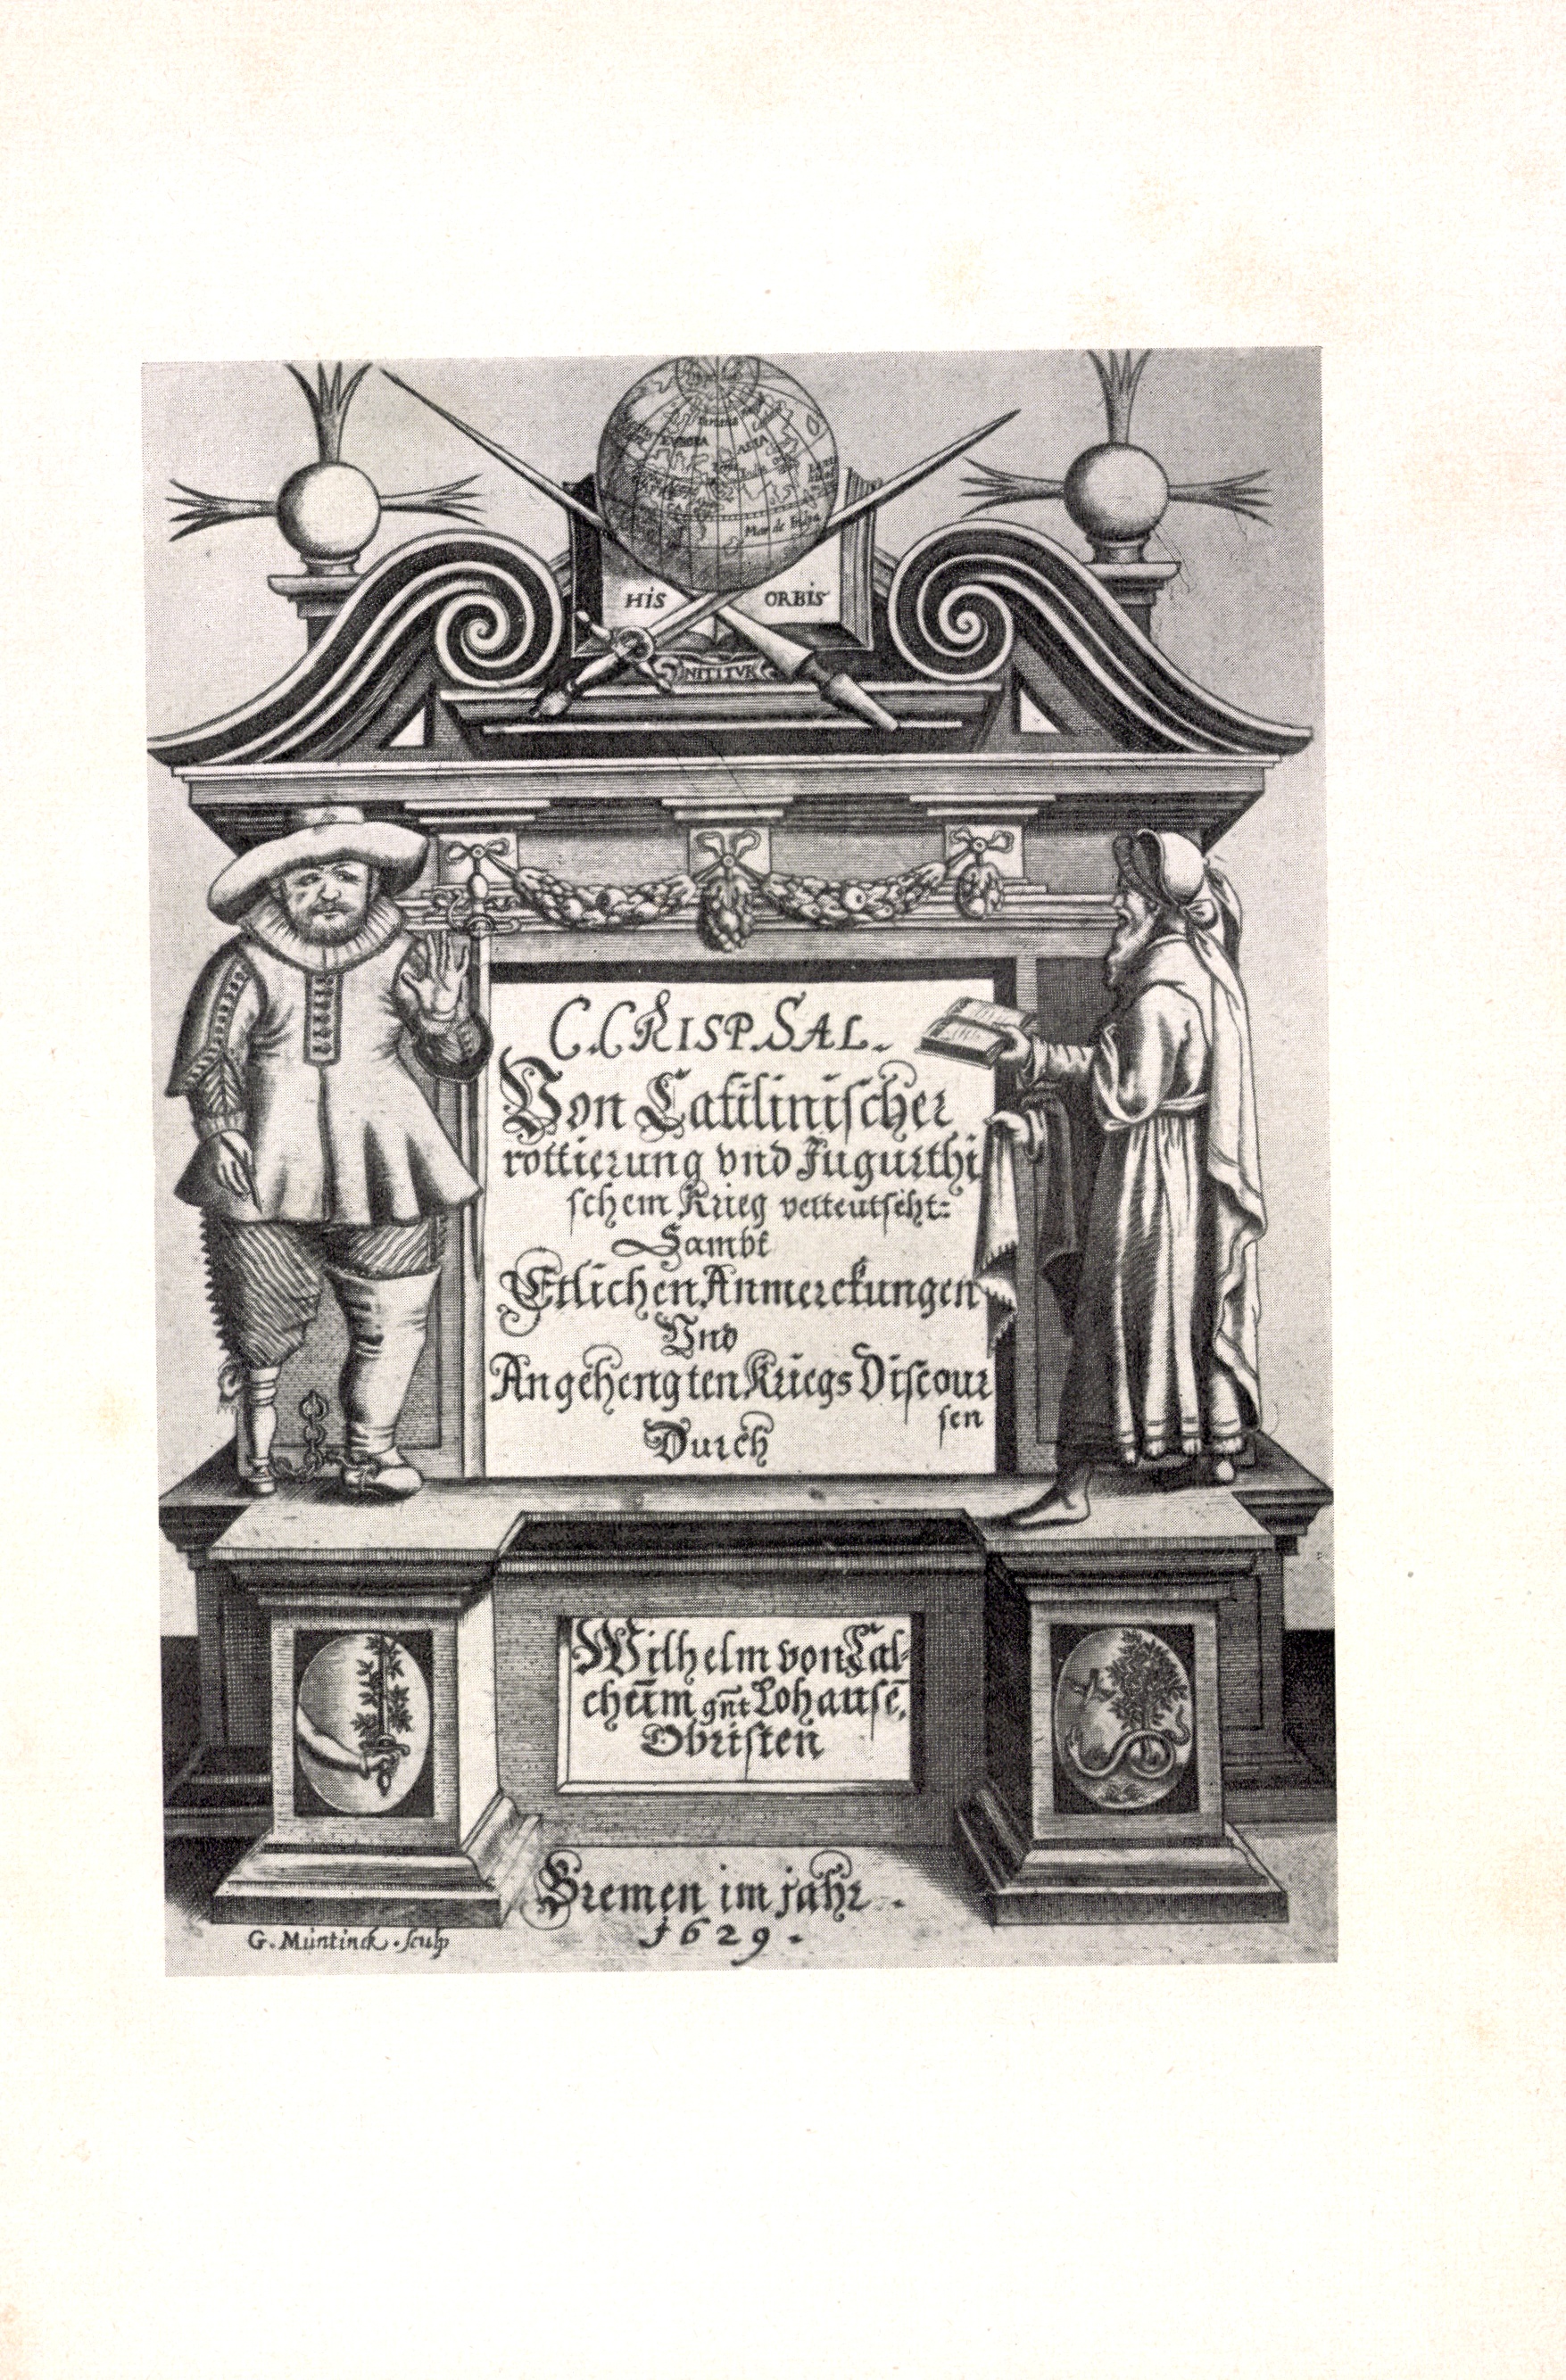 EVROPA ASIA
Mar de India
HIS ORBIS
NITITVR
C. CRISP. SAL.
Von Catilinischer
rottierung vnd Jugurthi
schem Krieg verteutscht:
Sambt
Etlichen Anmerckungen
Vnd
Angehengten Kriegs Discour
sen
Durch
Wilhelm von Cal-
cheim gnt Lohausē,
Obristen
Bremen im jahr.
1629.
G. Müntinck. sculp